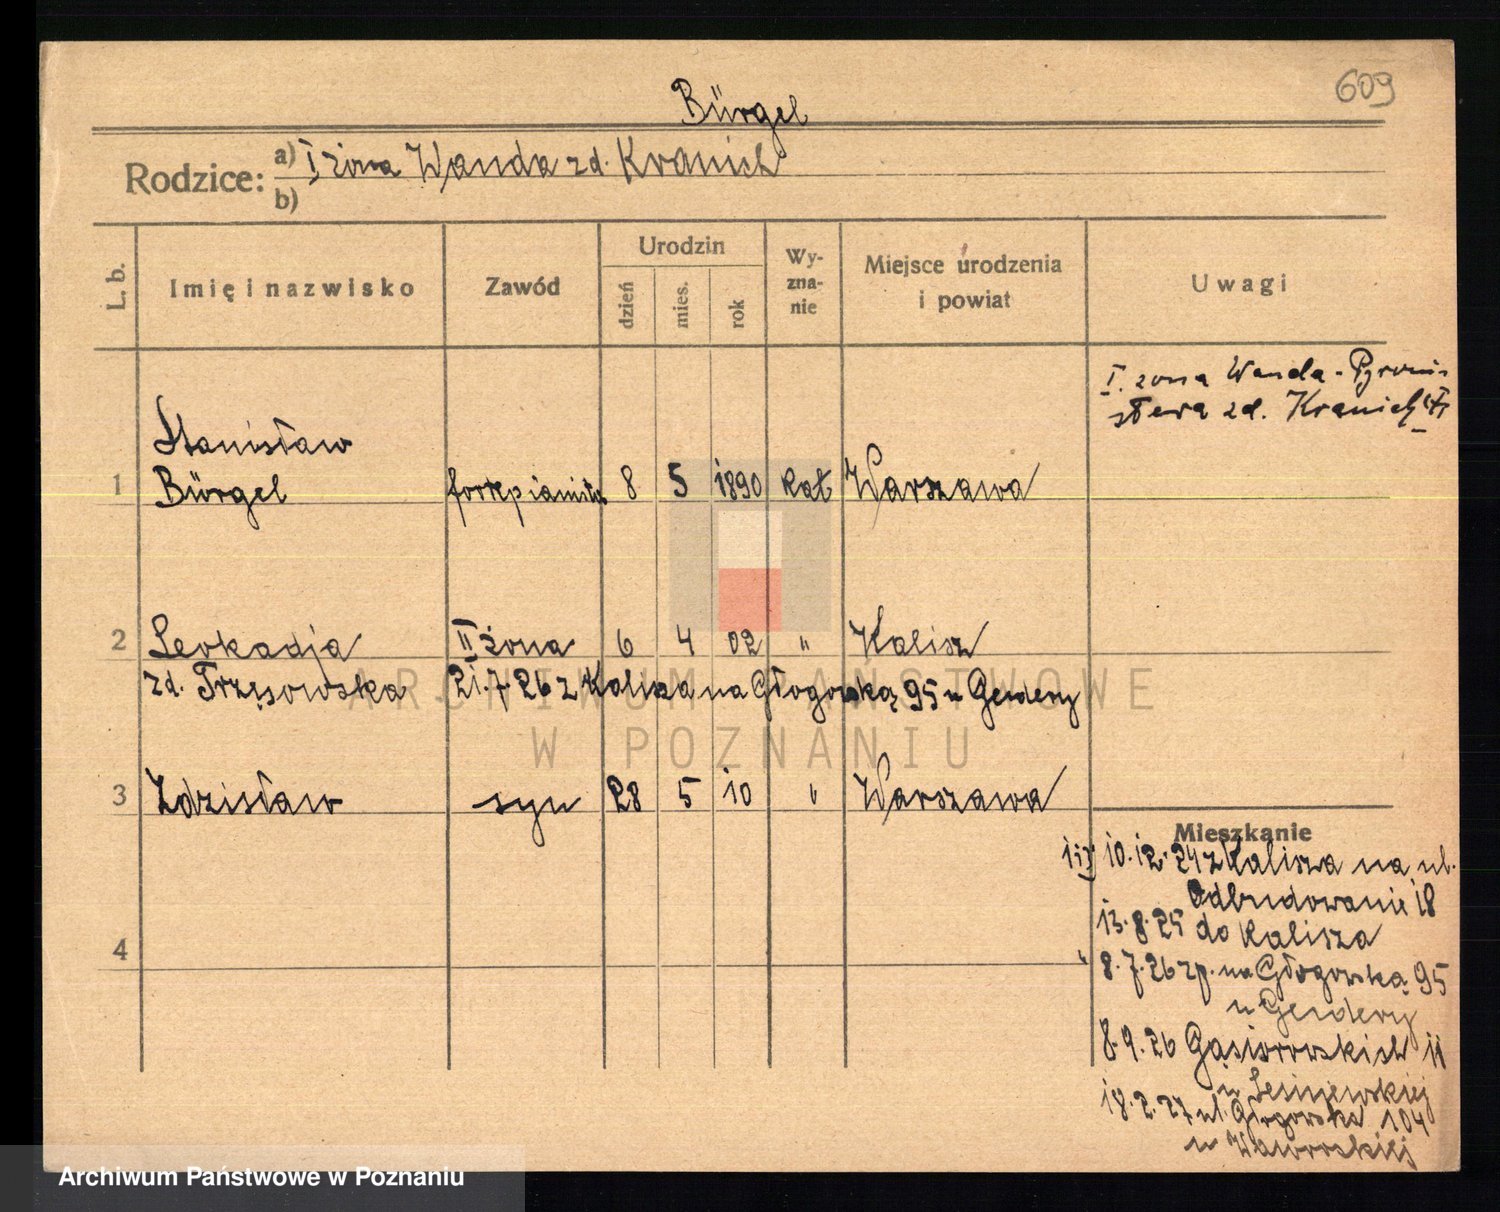 609
Bürgel
Rodzice: a) I żona Wanda zd. Kranich
b)
L. b. Imię i nazwisko Zawód Urodzin dzień mies. rok Wyznanie Miejsce urodzenia i powiat Uwagi
I. żona Wanda-Pyromi-
sława zd. Kranich
1 Stanisław
Bürgel fortepianista 8 5 1890 kat Warszawa
2 Leokadja II żona 6 4 02 " Kalisz
zd. Trzęsowska 21.7.26 z Kalisza na Głogowską 95 u Gendery
3 Zdzisław syn 28 5 10 " Warszawa
4
Mieszkanie
10.12.24 z Kalisza na ul.
Odbudowanie 18
13.8.25 do Kalisza
" 8.7.26 zp. na Głogowską 95
u Gendery
8.9.26 Gąsiorowskich 11
u Lesiniewskiej
18.2.27 ul. Głogowska 104
u Jaworskiej
ARCHIWUM PAŃSTWOWE
W POZNANIU
Archiwum Państwowe w Poznaniu